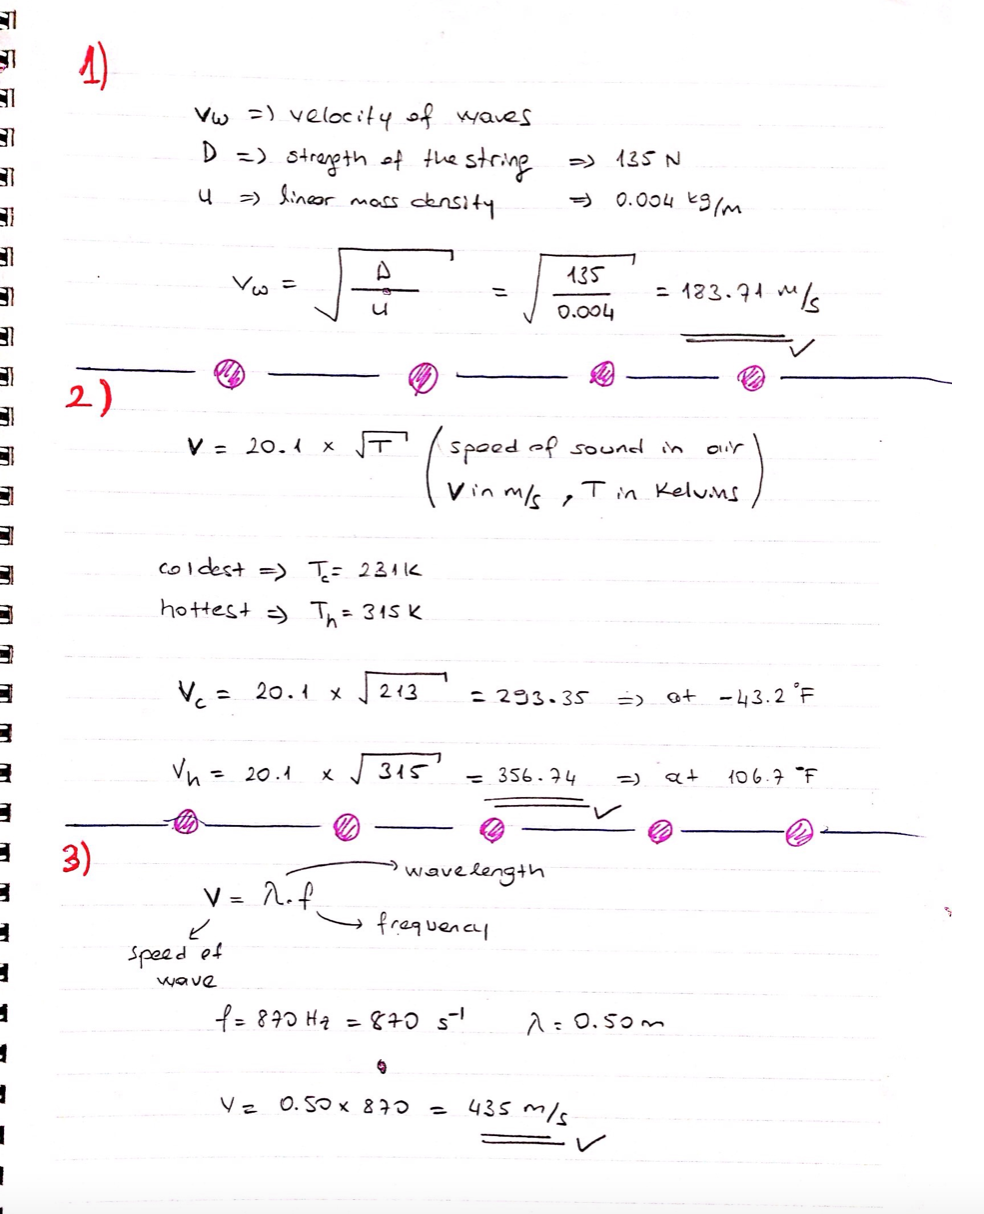 1)
Vw => velocity of waves
D => strength of the string => 135 N
u => linear mass density => 0.004 kg/m
Vw = √(D/u) = √(135/0.004) = 183.71 m/s ✓
2)
V = 20.1 × √T (speed of sound in air
V in m/s, T in Kelvins)
coldest => Tc = 231K
hottest => Th = 315 K
Vc = 20.1 × √213 = 293.35 => at -43.2 °F
Vh = 20.1 × √315 = 356.74 => at 106.7 °F ✓
3)
wavelength
V = λ.f
frequency
speed of
wave
f = 870 Hz = 870 s⁻¹ λ = 0.50 m
V = 0.50 × 870 = 435 m/s ✓